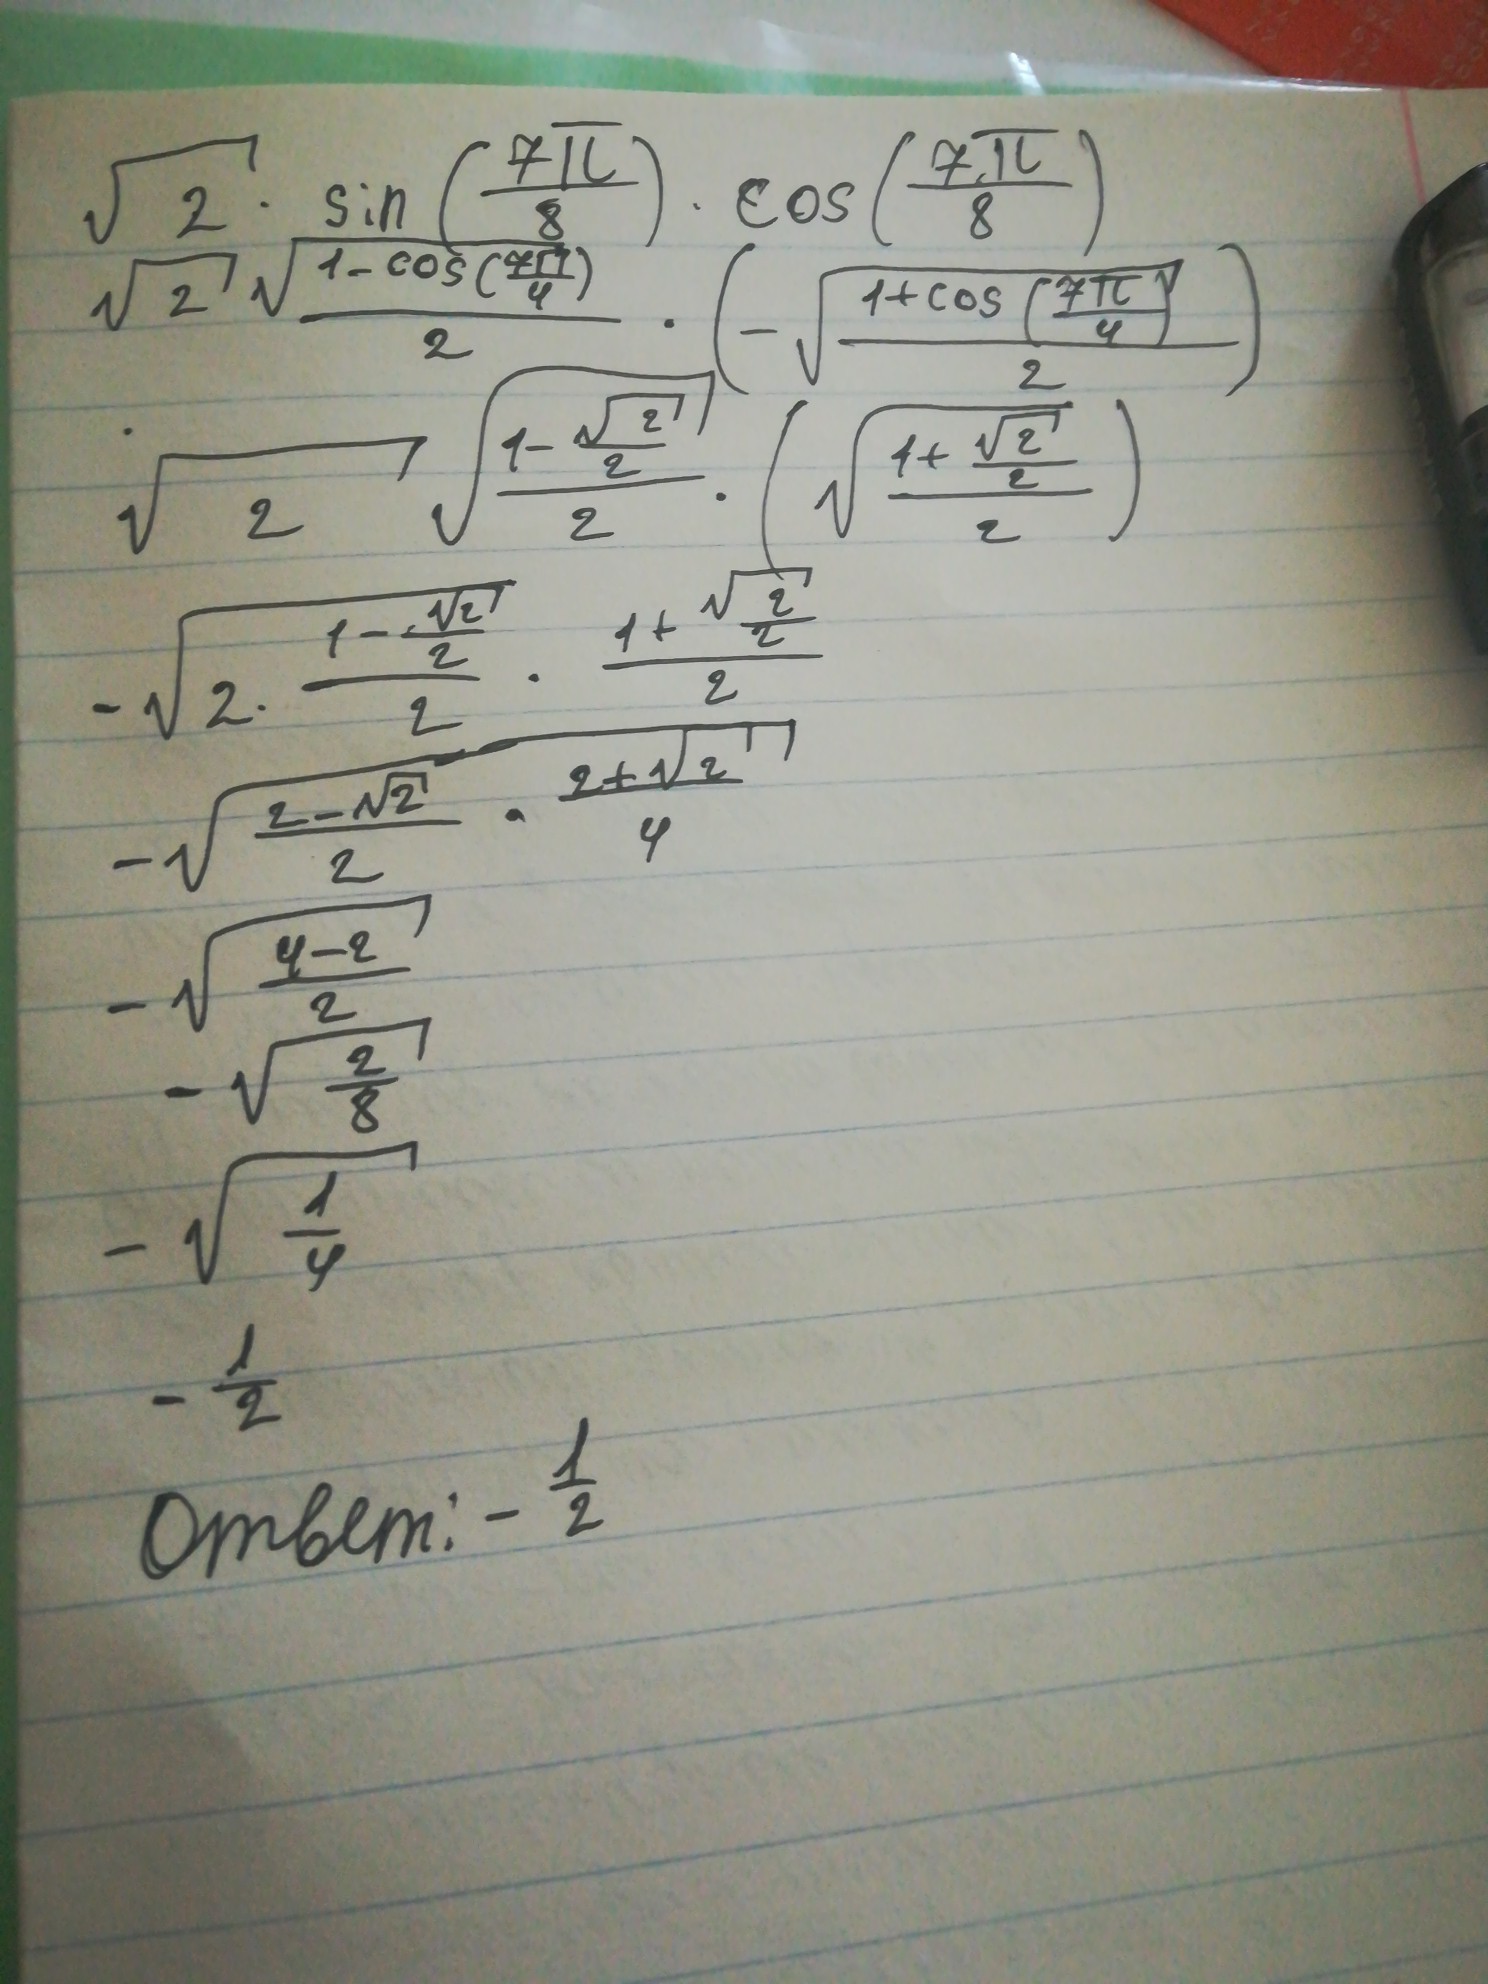 √2 · sin(7π/8) · cos(7π/8)
√2 √((1-cos(7π/4))/2) · (-√((1+cos(7π/4))/2))
√2 √((1-√2/2)/2) · (√((1+√2/2)/2))
-√(2 · (1-√2/2)/2 · (1+√(2/2))/2)
-√((2-√2)/2 · (2+√2)/4)
-√((4-2)/2)
-√(2/8)
-√(1/4)
-1/2
Ответ: -1/2